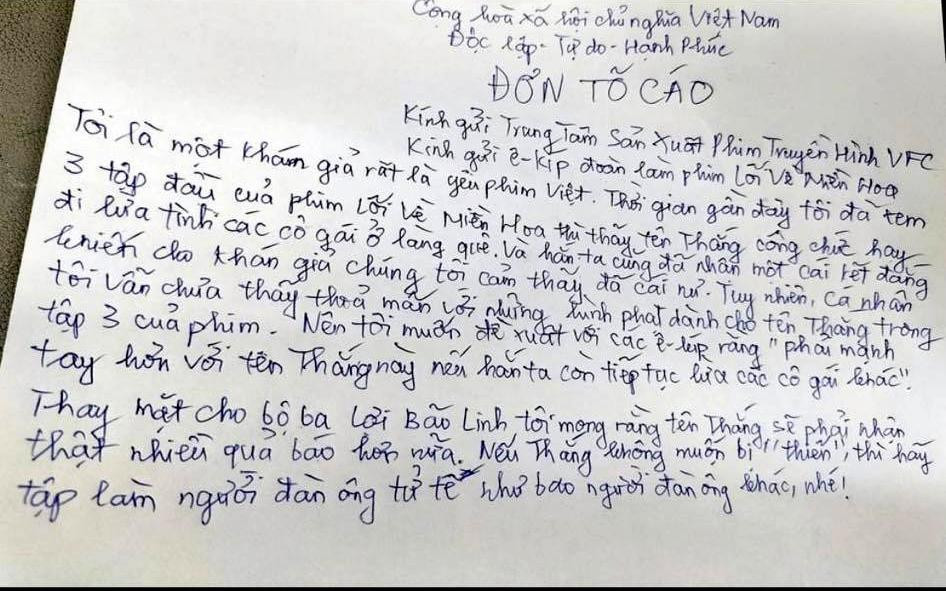 Cộng hoà xã hội chủ nghĩa Việt Nam
Độc lập - Tự do - Hạnh Phúc
ĐƠN TỐ CÁO
Kính gửi Trung Tâm Sản Xuất Phim Truyền Hình VFC
Kính gửi ê-kíp đoàn làm phim Lối Về Miền Hoa
Tôi là một khán giả rất là yêu phim Việt. Thời gian gần đây tôi đã xem
3 tập đầu của phim Lối Về Miền Hoa thì thấy tên Thắng công chức hay
đi lừa tình các cô gái ở làng quê. Và hắn ta cũng đã nhận một cái kết đắng
khiến cho khán giả chúng tôi cảm thấy đã cái nư. Tuy nhiên, cá nhân
tôi vẫn chưa thấy thoả mãn với những hình phạt dành cho tên Thắng trong
tập 3 của phim. Nên tôi muốn đề xuất với các ê-kíp rằng "phải mạnh
tay hơn với tên Thắng này nếu hắn ta còn tiếp tục lừa các cô gái khác".
Thay mặt cho bộ ba Lợi Bão Linh tôi mong rằng tên Thắng sẽ phải nhận
thật nhiều quả báo hơn nữa. Nếu Thắng không muốn bị "thiến", thì hãy
tập làm người đàn ông tử tế như bao người đàn ông khác, nhé!